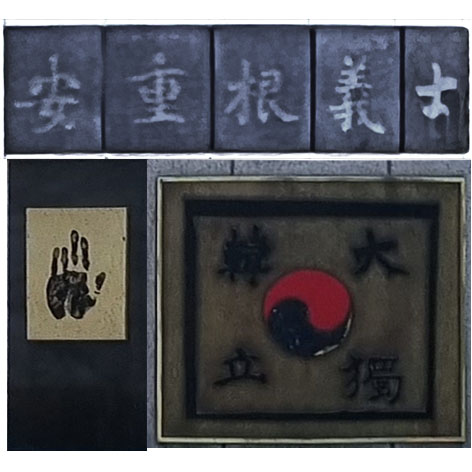 安重根義士
大韓
獨立